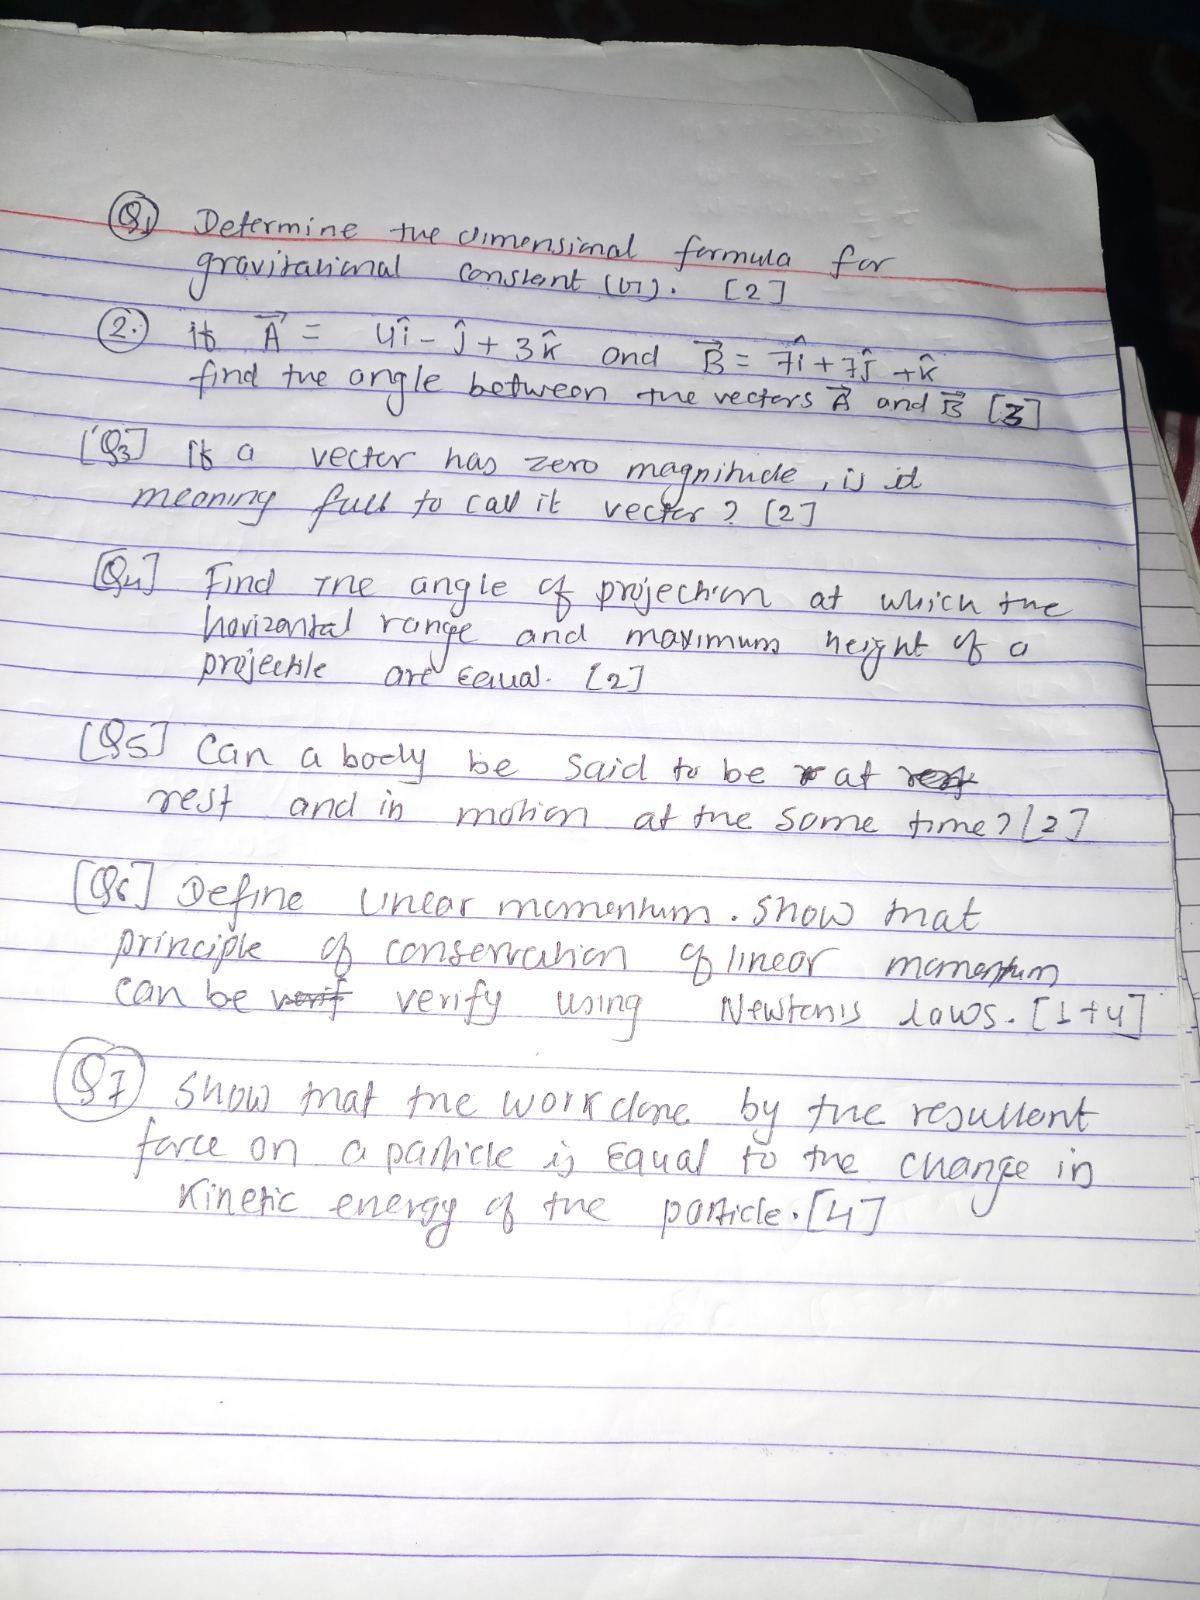 Q1 Determine the dimensional formula for
gravitational constant (G). [2]
2. If A⃗ = 4î - ĵ + 3k̂ and B⃗ = 7î + 7ĵ + k̂
find the angle between the vectors A⃗ and B⃗ [3]
[Q3] If a vector has zero magnitude, is it
meaning full to call it vector? [2]
[Q4] Find the angle of projection at which the
horizontal range and maximum height of a
projectile are equal. [2]
[Q5] Can a body be said to be at
rest and in motion at the same time? [2]
[Q6] Define linear momentum. Show that
principle of conservation of linear momentum
can be verify using Newton's laws. [1+4]
Q7 Show that the workdone by the resultent
force on a particle is equal to the change in
kinetic energy of the particle. [4]